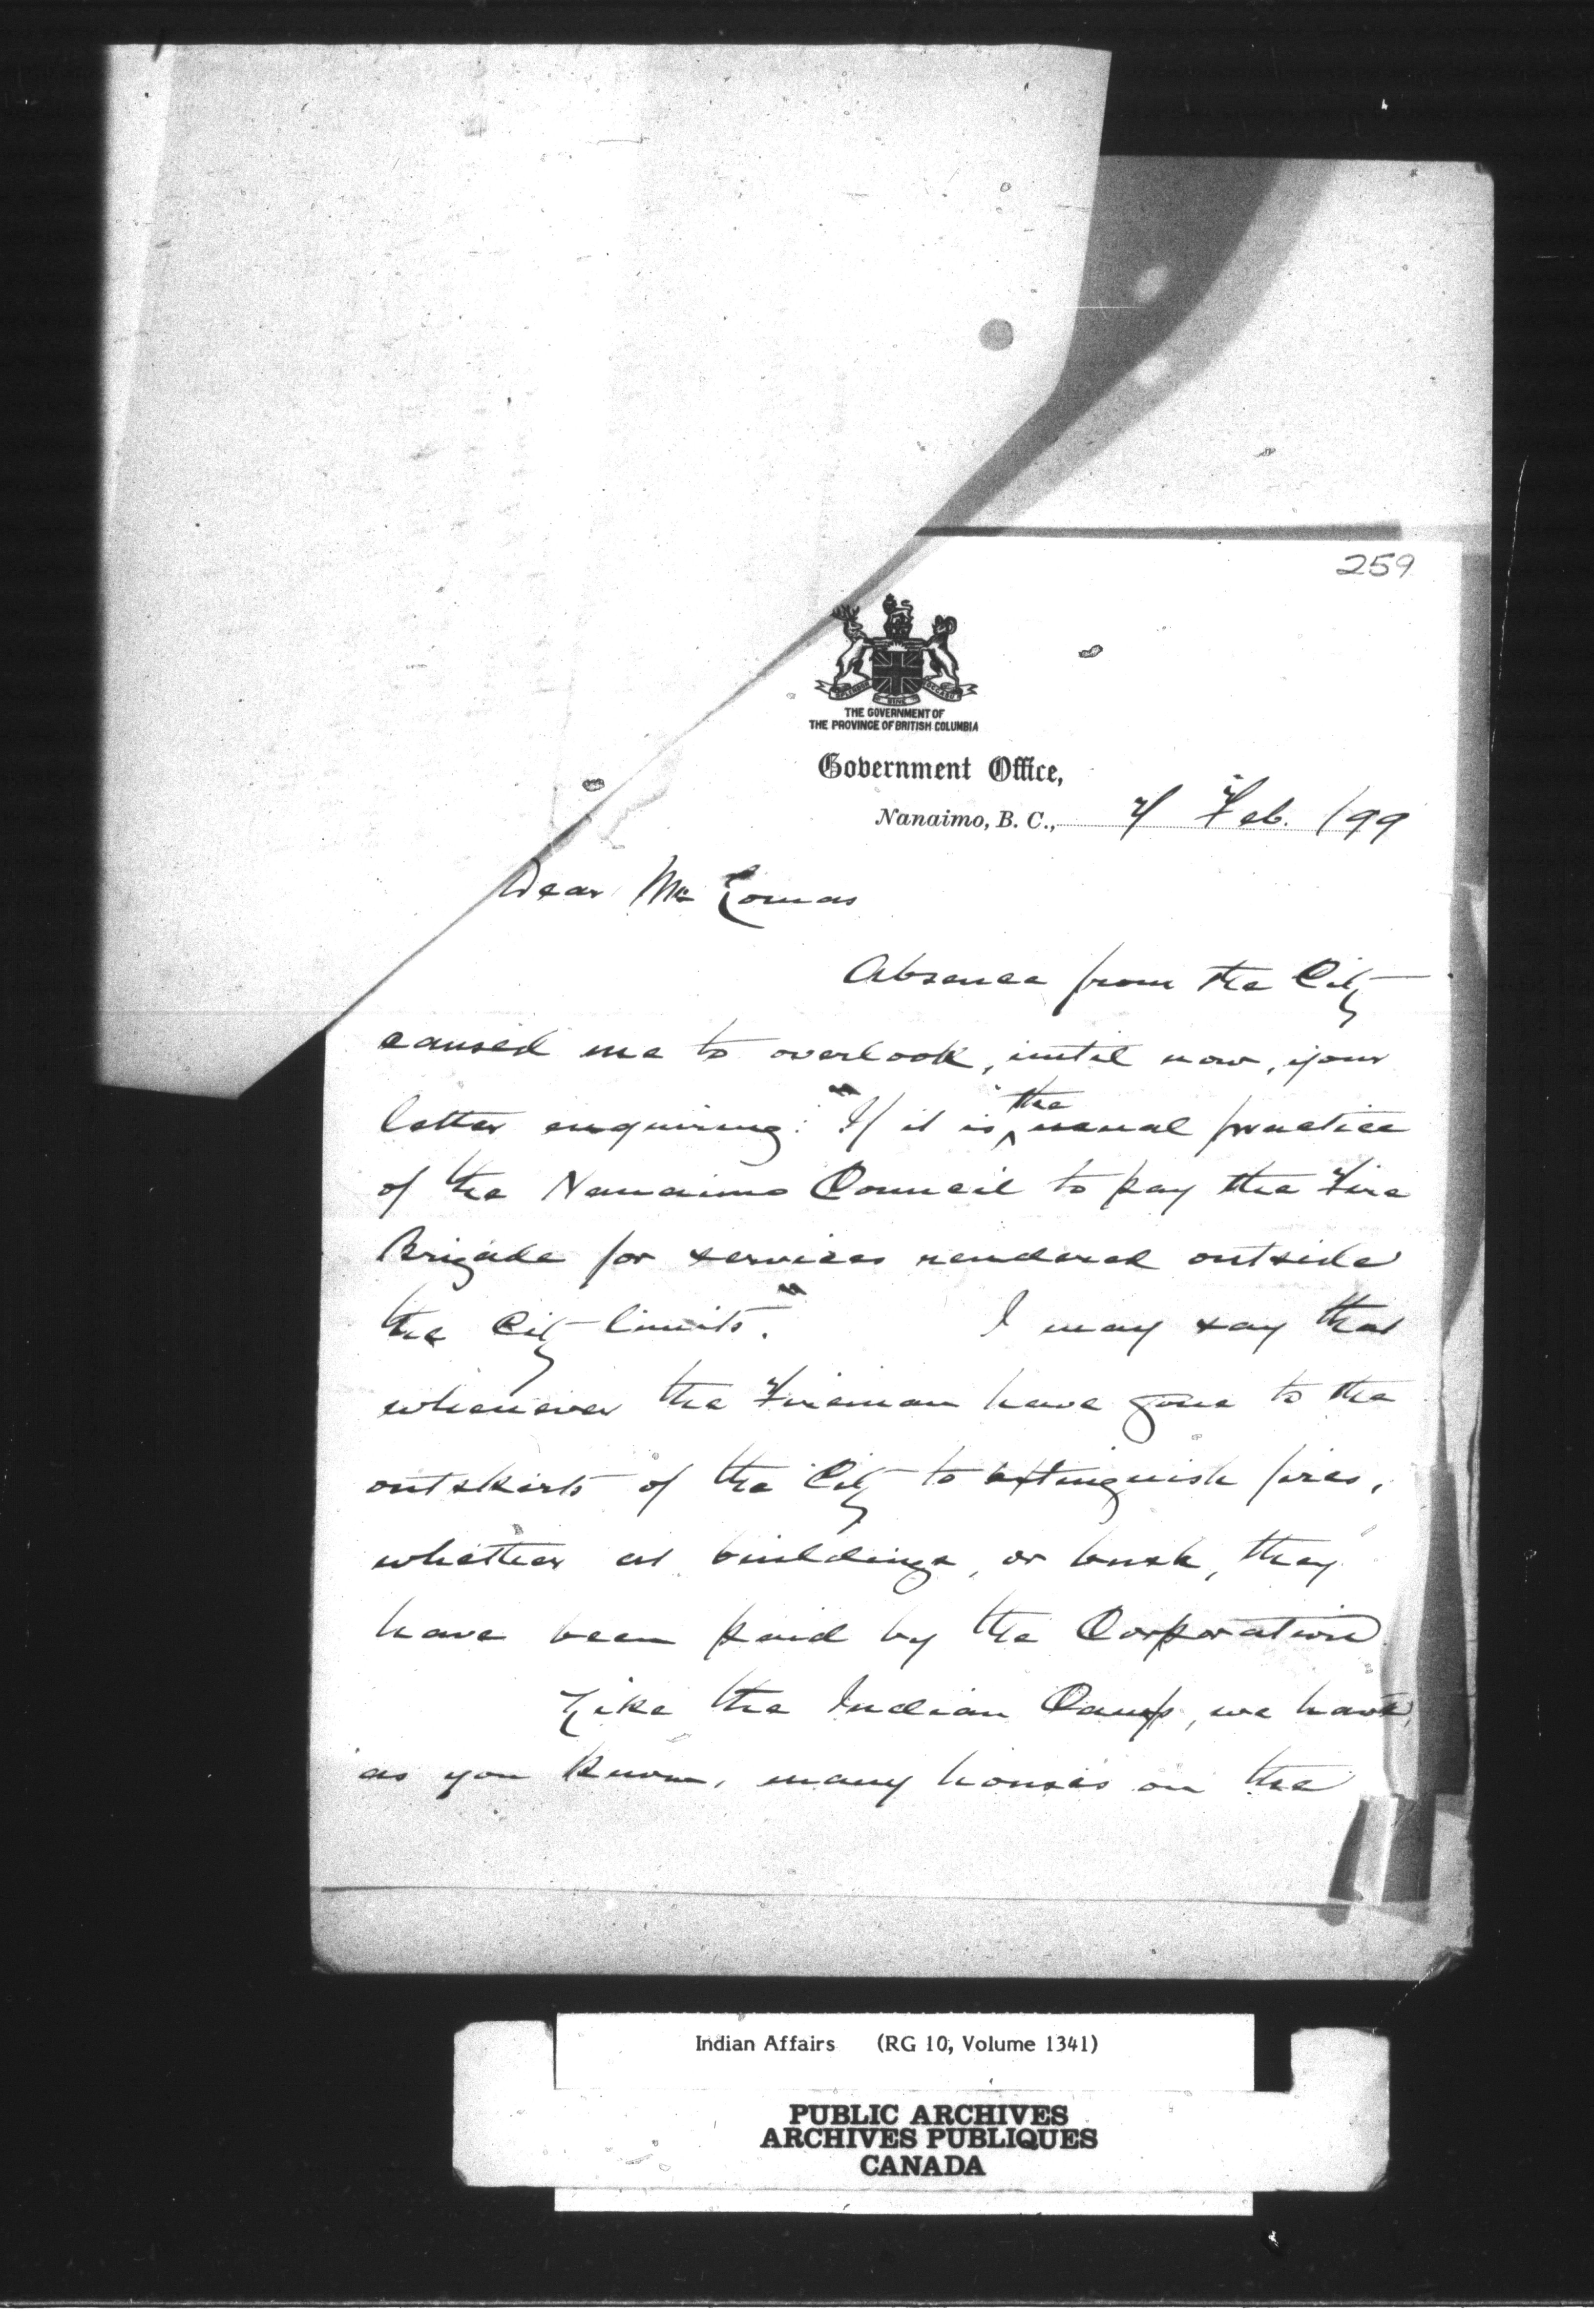 259
SPLENDOR SINE OCCASU
THE GOVERNMENT OF
THE PROVINCE OF BRITISH COLUMBIA
Government Office,
Nanaimo, B. C., 4 Feb. /99
Dear Mr Lomas
Absence from the City
caused me to overlook, until now, your
letter enquiring: "If it is the usual practice
of the Nanaimo Council to pay the Fire
Brigade for services rendered outside
the City limits." I may say that
whenever the Firemen have gone to the
outskirts of the City to extinguish fires,
whether at buildings, or bush, they
have been paid by the Corporation
Like the Indian Camp, we have,
as you know, many houses on the
Indian Affairs (RG 10, Volume 1341)
PUBLIC ARCHIVES
ARCHIVES PUBLIQUES
CANADA